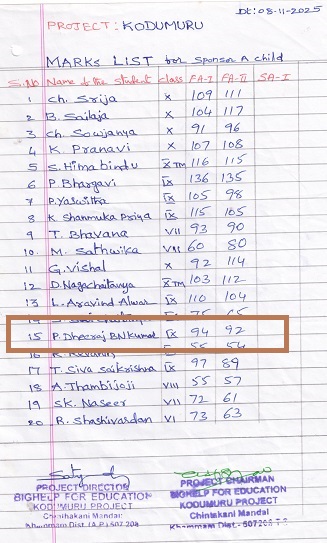 Dt: 08-11-2025
PROJECT: KODUMURU
MARKS LIST for Sponsor A child
S.No Name of the student class FA-I FA-II SA-I
1 Ch. Srija X 109 111
2 B. Sailaja X 104 117
3 Ch. Soujanya X 91 96
4 K. Pranavi X 107 108
5 S. Hima bindu X TM 116 115
6 P. Bhargavi IX 136 135
7 P. Yaswitha IX 105 98
8 K. Shanmuka Priya IX 115 105
9 T. Bhavana VII 93 90
10 M. Sathwika VII 60 80
11 G. Vishal X 92 114
12 D. Nagachaitanya X TM 103 112
13 L. Aravind Alwar IX 110 104
14
15 P. Dheeraj B.N.kumar IX 94 92
16 55 54
17 T. Siva Saikrishna IX 97 89
18 A. Thambijoji VIII 55 57
19 SK. Naseer VII 72 61
20 R. Shashivardan VI 73 63
PROJECT DIRECTOR
BIGHELP FOR EDUCATION
KODUMURU PROJECT
Chinthakani Mandal
Khammam Dist. (A.P.) 507 208
PROJECT CHAIRMAN
BIGHELP FOR EDUCATION
KODUMURU PROJECT
Chintakani Mandal
Khammam Dist.